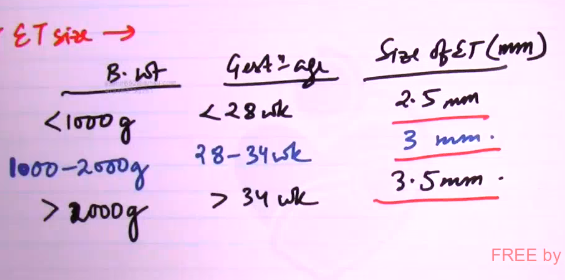 ET size →
B. wt Gestⁿ age Size of ET (mm)
<1000g <28 wk 2.5 mm
1000-2000g 28-34 wk 3 mm.
>2000g > 34 wk 3.5mm.
FREE by